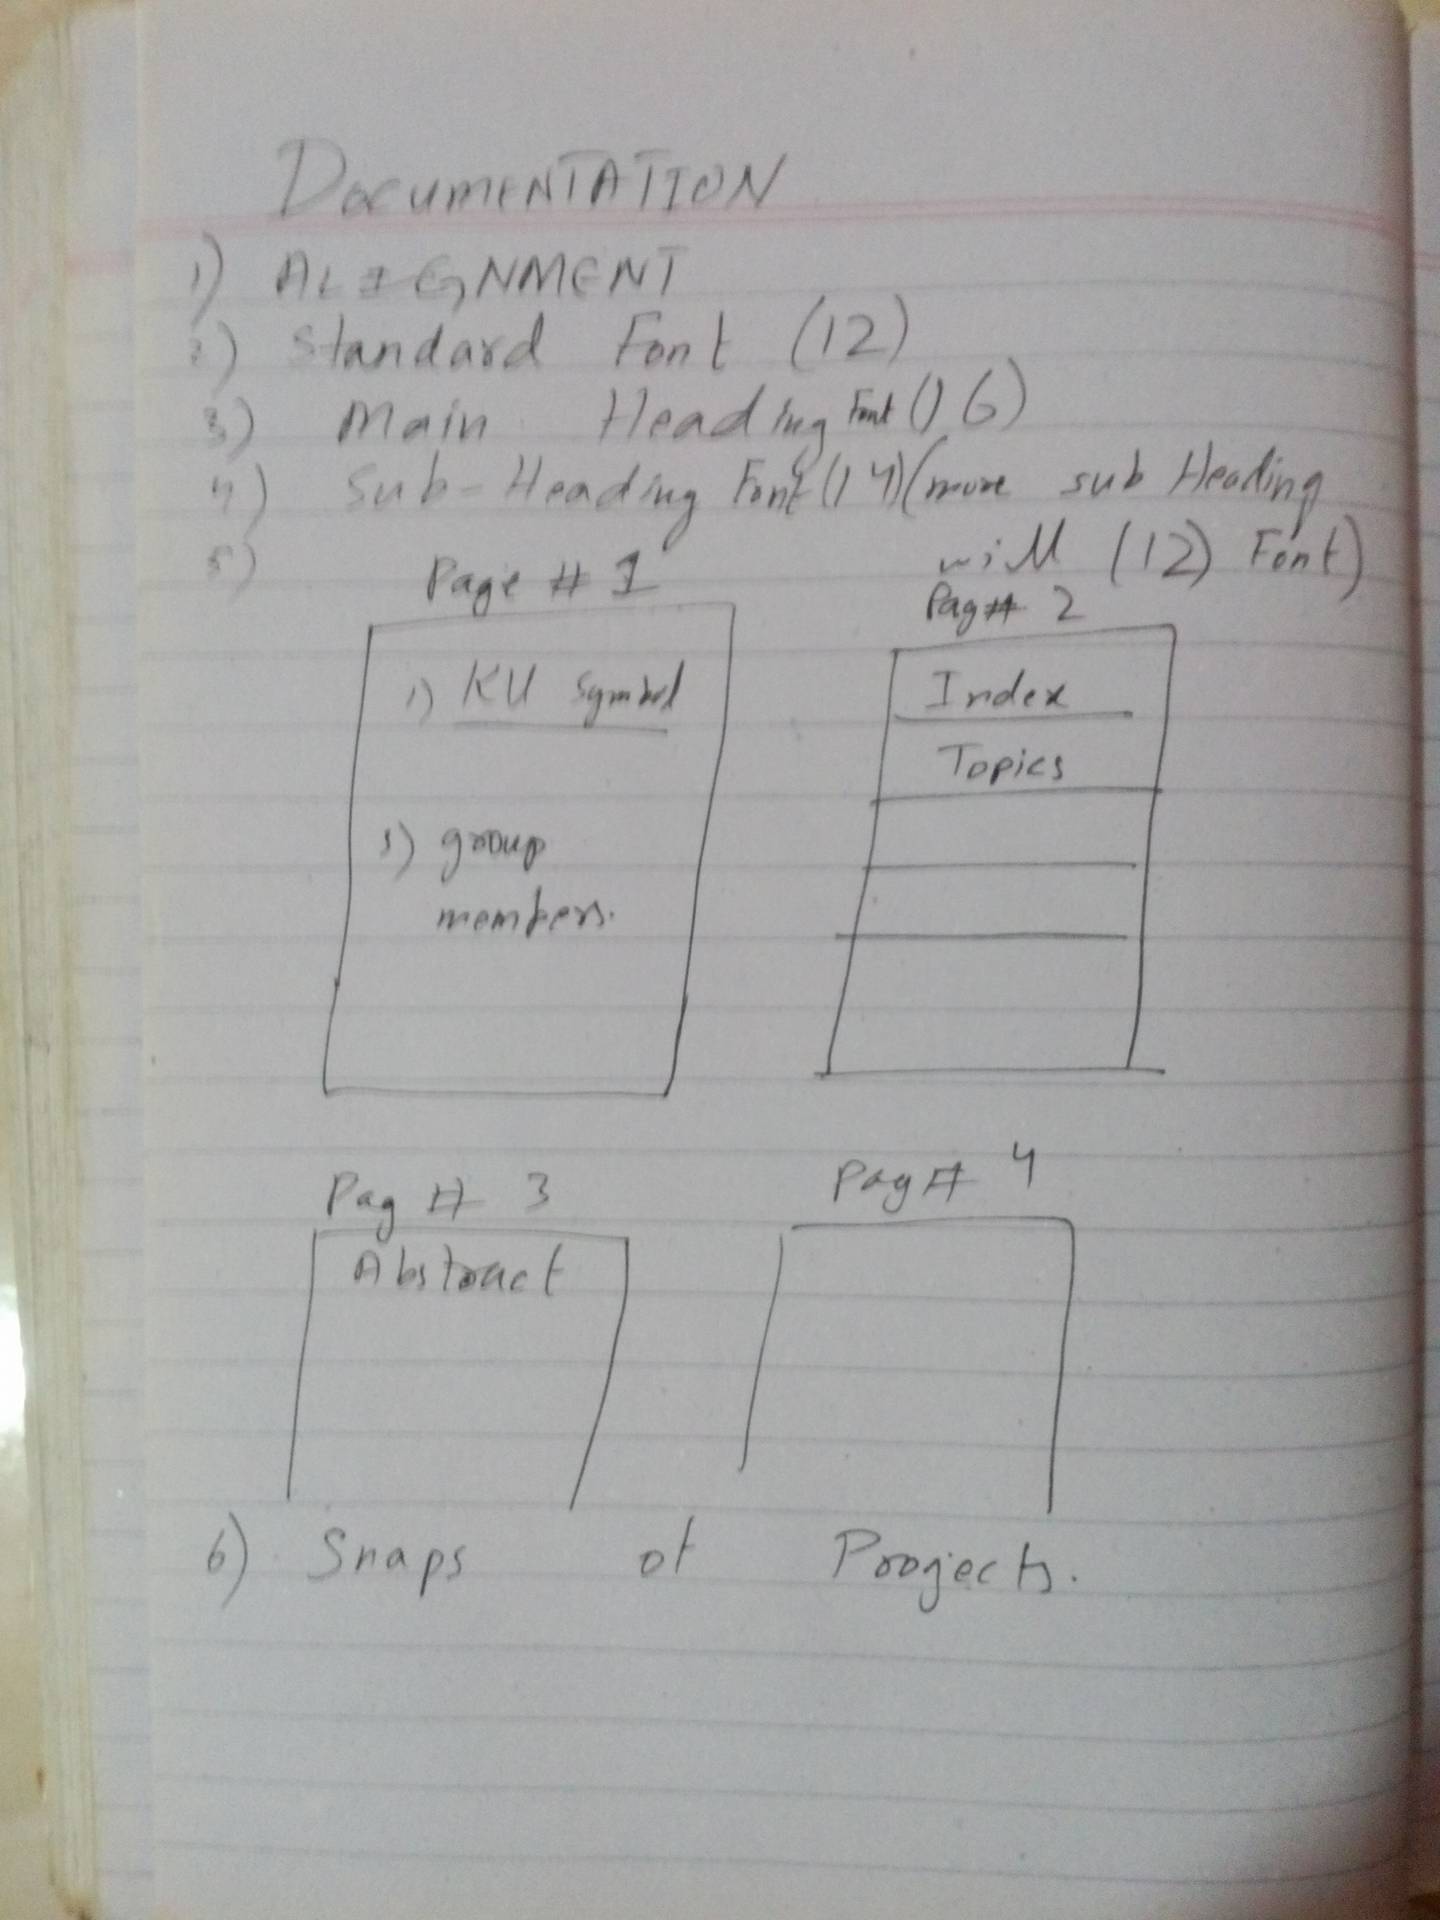 DOCUMENTATION
1) ALIGNMENT
2) Standard Font (12)
3) Main Heading Font (16)
4) Sub-Heading Font (14) (more sub Heading
will (12) Font)
5)
Page # 1
1) KU Symbol
group
members.
Pag # 2
Index
Topics
Pag # 3
Abstract
Pag # 4
6) Snaps of Projects.